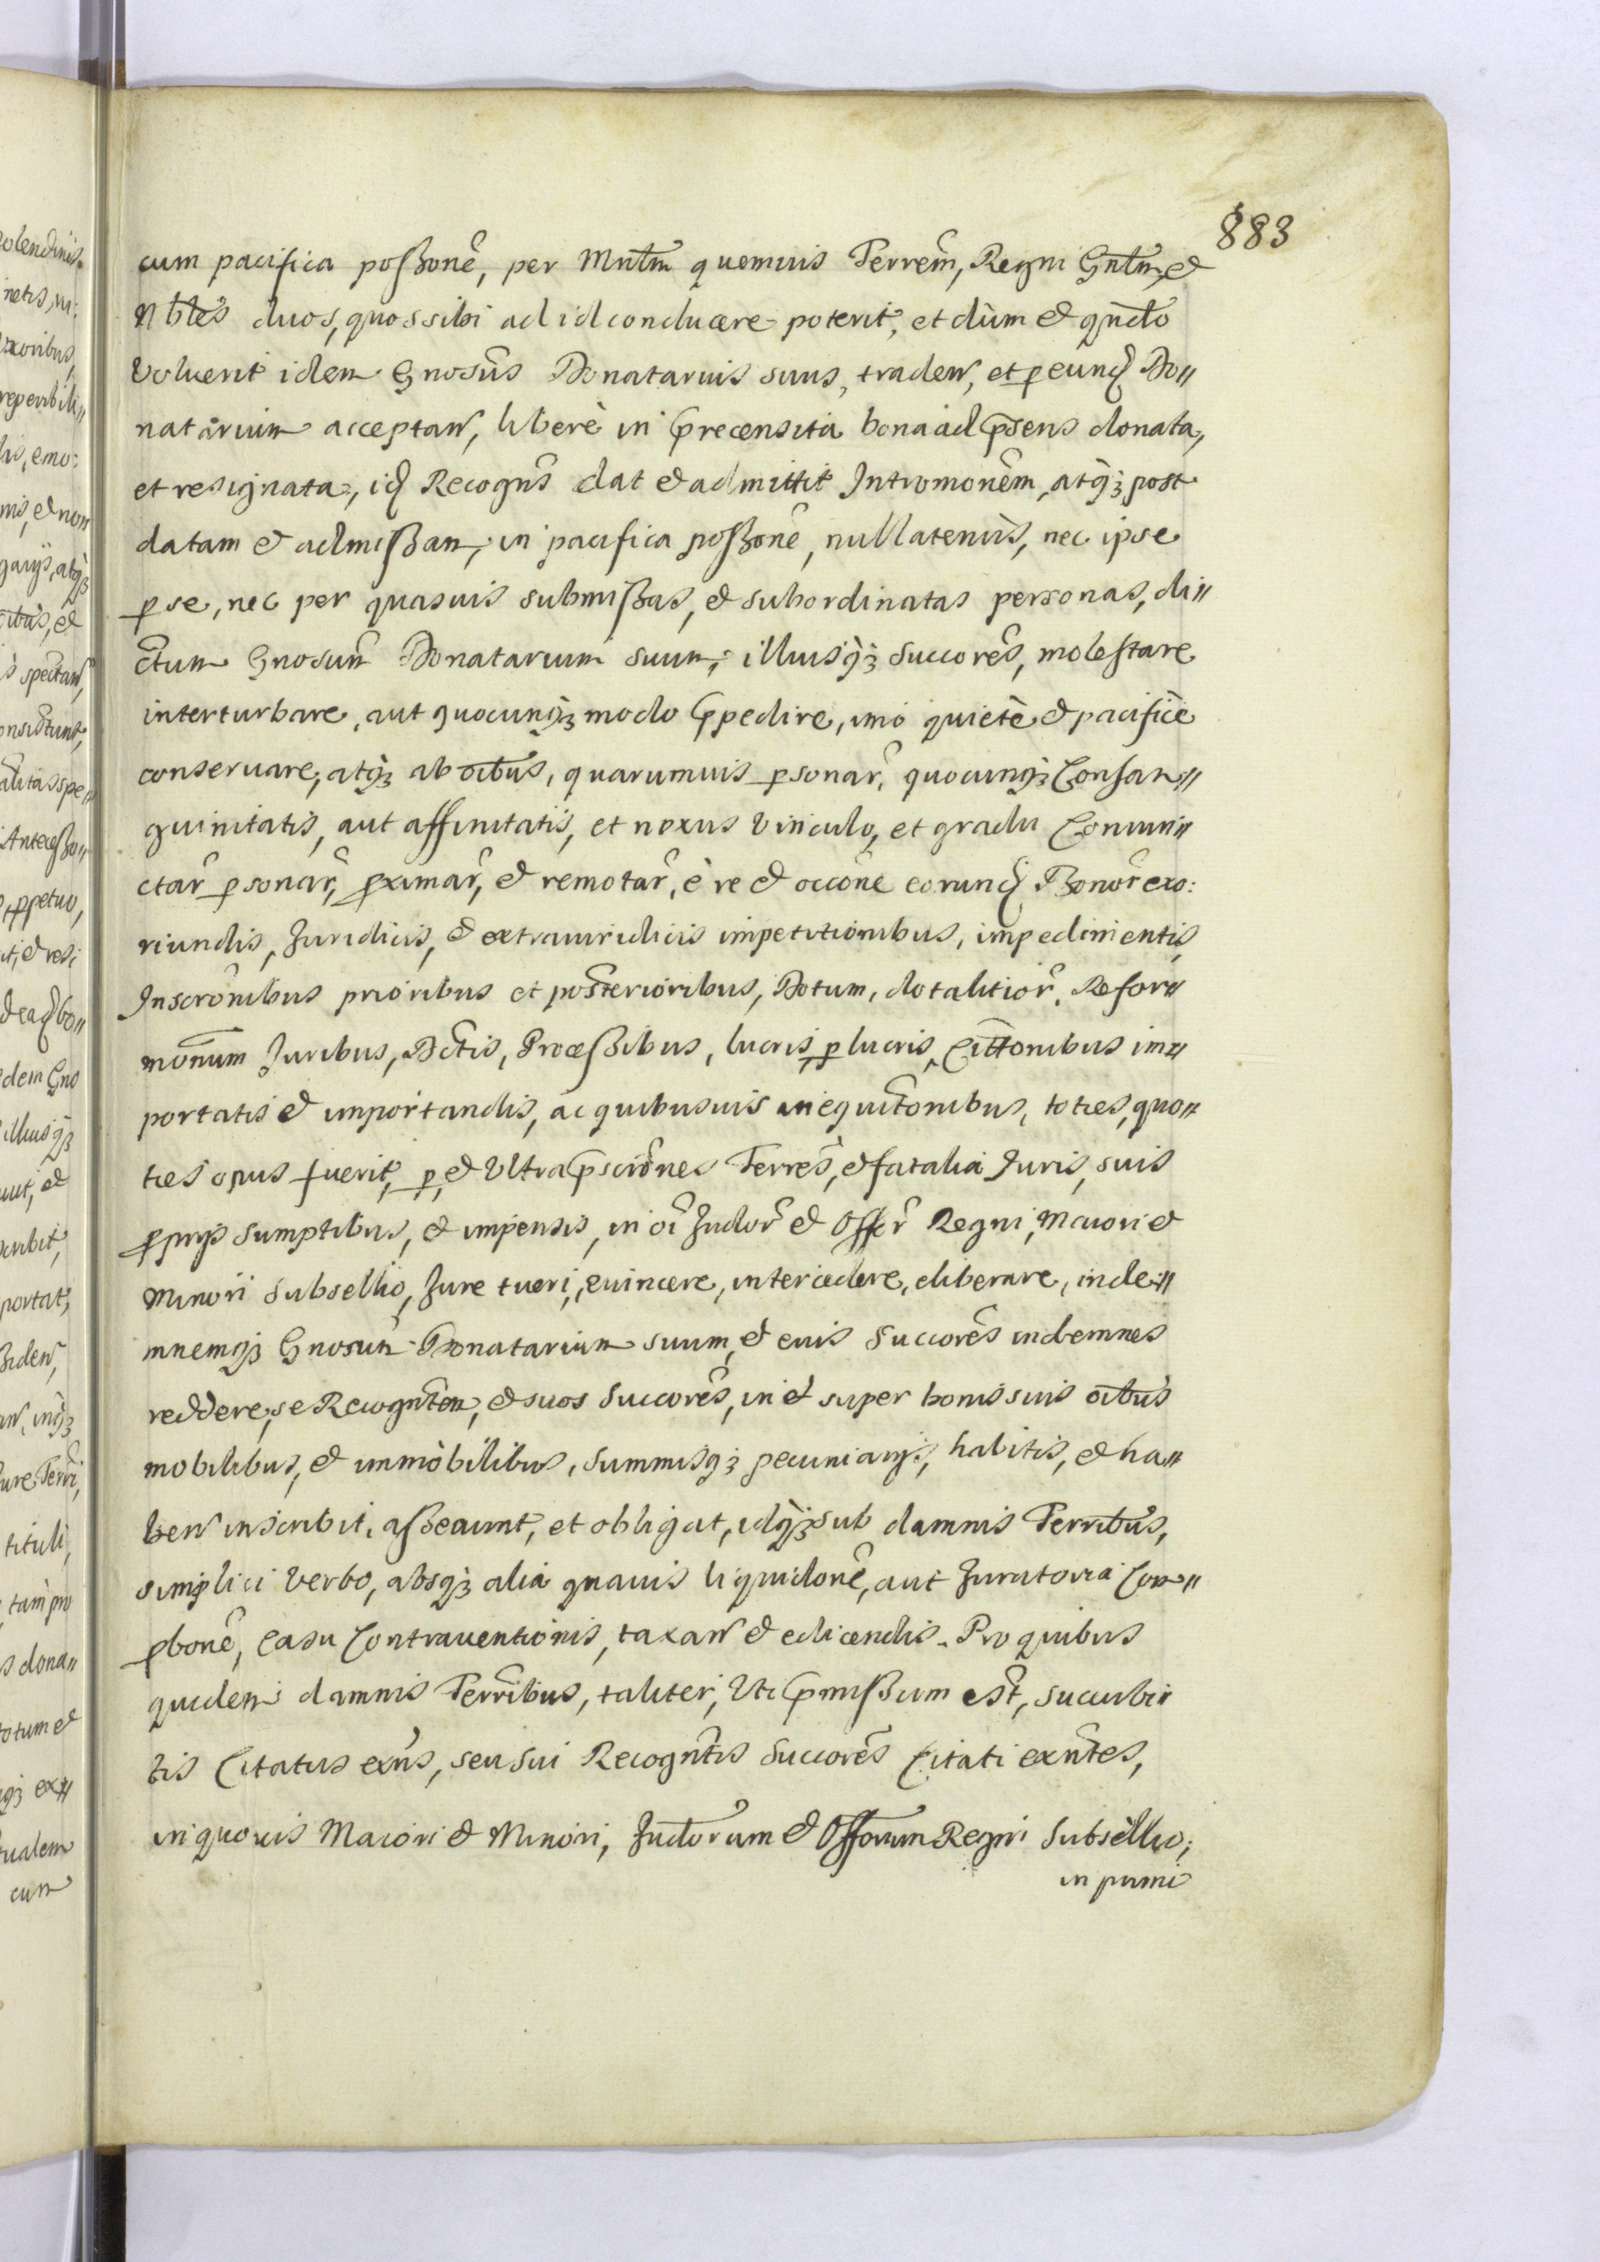 883
cum pacifica poßzonẽ, per Mnlm̃ quemvis Terrem̃, Regni Gnlm̃, et
Nbles duos, quos sibi ad id conducere poterit, et dùm et qndo
Voluerit idem Gnosus Donatarius suus, traden, et p eund Do//
natarium acceptan, liberè in precensita bona ad prsens donata,
et resignata, id Recogns dat et admittit Intromonẽm, atq3 post
datam et admißam, in pacifica poßonẽ, nullatenùs, nec ipse
p se, nec per quasuis submißas, et subordinatas personas, di//
ctum Gnosum Donatarium suum, illiusq3 Succorẽs, molestare
interturbare, aut quocunq3 modo Impedire, imò quietè et pacificè
conservare, atq3 ab oibus, quarumuis psonar, quocunq3 Consan//
guinitatis, aut affinitatis, et nexus Vinculo, et gradu Coniun//
ctar psonar, pximar, et remotar, è re et occone eorund Bonor exo:
riundis, Juridicis, et extraiuridicis impetitionibus, impedimentis,
Inscronibus prioribus et posterioribus, Dotum, dotalitior, Refor//
monum Juribus, Actis, Proceßibus, lucris, plucris, Cittonibus im//
portatis et importandis, ac quibusuis inequitonibus, toties, quo//
ties opus fuerit, p, et Ultra prscriones Terres, et fatalia Juris, suis
pprijs sumptibus, et impensis, in oi Judor et Offcr Regni, Maiori et
Minori Subsellio, Jure tueri, evincere, intercedere, eliberare, inde//
mnemq3 Gnosum Donatarium suum, et eius Succores indemnes
reddere, se Recogntem, et suos Succores, in et super bonis suis oibus
mobilibus, et immobilibus, Summisq3 pecuniarijs, habitis, et ha//
ben inscribit, aßecurat, et obligat, idq3 sub damnis Terribus,
simplici Verbo, absq3 alia quauis liquidone, aut Juratoria Com//
pbone, Casu Contrauentionis, taxan et edicendis. Pro quibus
quidem damnis Terribus, taliter, Uti pmißum est, succubi//
tis Citatus exns, seu sui Recogntis Succores Citati exntes,
in quovis Maiori et Minori, Judorum et Offorum Regni Subsellio,
in primi